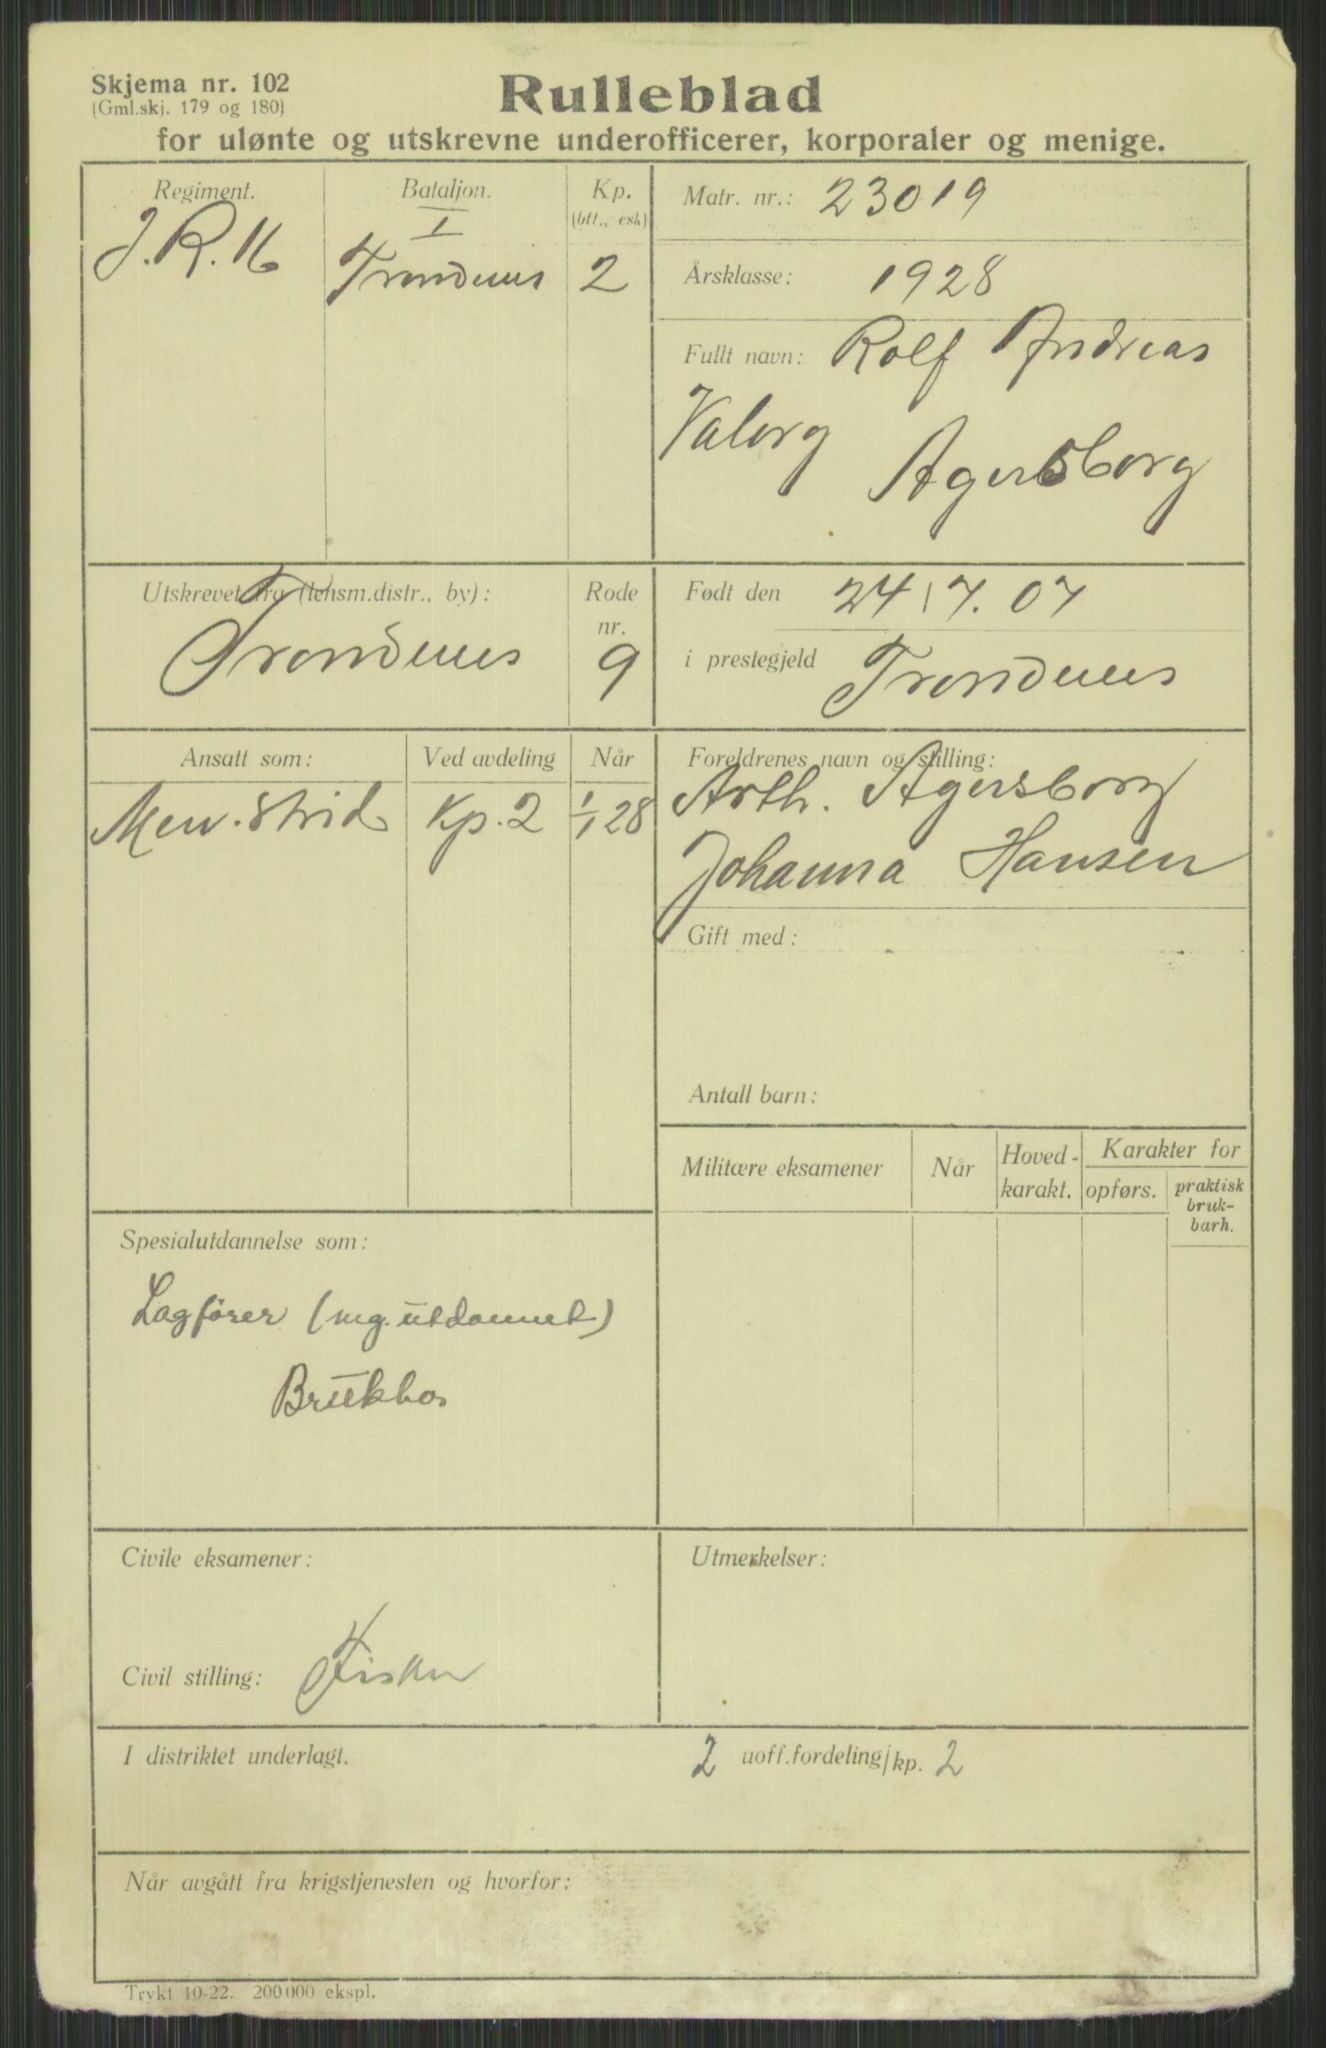 Skjema nr. 102
(Gml.skj. 179 og 180)
Rulleblad
for ulønte og utskrevne underofficerer, korporaler og menige.
Regiment.
J.R. 16
Bataljon.
I
Trondenes
Kp.
(btt., esk)
2
Matr. nr.: 23019
Årsklasse: 1928
Fullt navn: Rolf Andreas
Valorg Agersborg
Utskrevet fra (lensm.distr., by):
Trondenes
Rode
nr.
9
Født den 24/7. 07
i prestegjeld Trondenes
Ansatt som:
Ved avdeling
Når
Men. Strid
Kp. 2
1/1 28
Foreldrenes navn og stilling:
Arth. Agersborg
Johanna Hansen
Gift med:
Antall barn:
Militære eksamener
Når
Hoved-
karakt.
Karakter for
opførs.
praktisk
bruk-
barh.
Spesialutdannelse som:
Lagfører (mg. utdannet)
Brukbar
Civile eksamener:
Civil stilling: Fisker
Utmerkelser:
I distriktet underlagt. 2 uoff.fordeling/kp. 2
Når avgått fra krigstjenesten og hvorfor:
Trykt 10-22. 200000 ekspl.